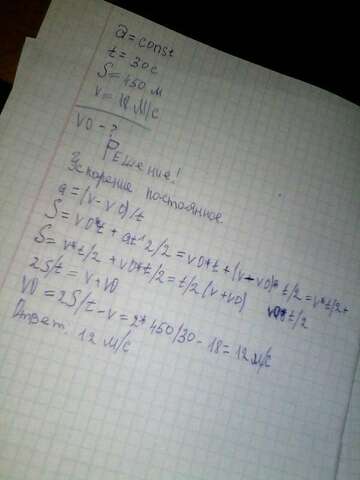 a = const
t = 30 с
S = 450 м
v = 18 м/с
v0 - ?
Решение!
Ускорение постоянное
a = (v - v0)/t
S = v0*t + at^2/2 = v0*t + (v - v0)*t/2 = v*t/2 + v0*t/2
S = v*t/2 + v0*t/2 = t/2 (v + v0)
2S/t = v + v0
v0 = 2S/t - v = 2*450/30 - 18 = 12 м/с
Ответ: 12 м/с